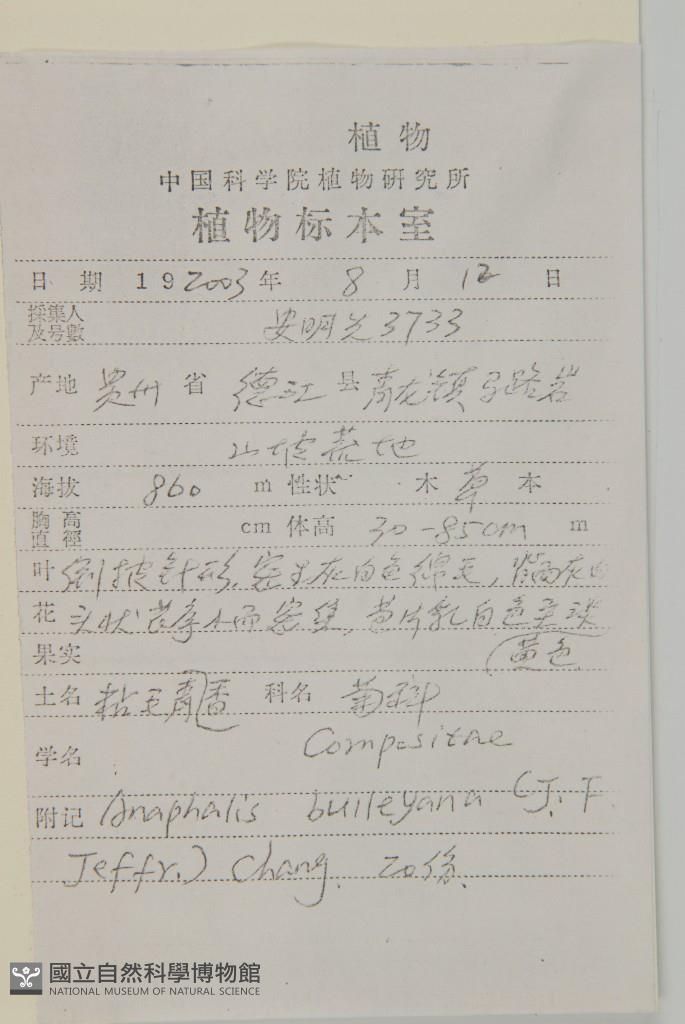 植物
中国科学院植物研究所
植物标本室
日 期 192003年 8 月 12 日
採集人
及号數 安明先3733
产地 贵州 省 德江 县 青龙镇
环境 山坡荒地
海拔 860 m 性状 木 草 本
胸高
直徑 cm 体高 30-85cm m
叶 倒披针形,密生灰白色绵毛,背面灰白
花 头状花序小而密集,苞片乳白色至淡
果实 黄色
土名 粘毛青香 科名 菊科
学名 Compositae
附记 Anaphalis bulleyana (J. F.
Jeffr.) Chang. 20份.
國立自然科學博物館
NATIONAL MUSEUM OF NATURAL SCIENCE